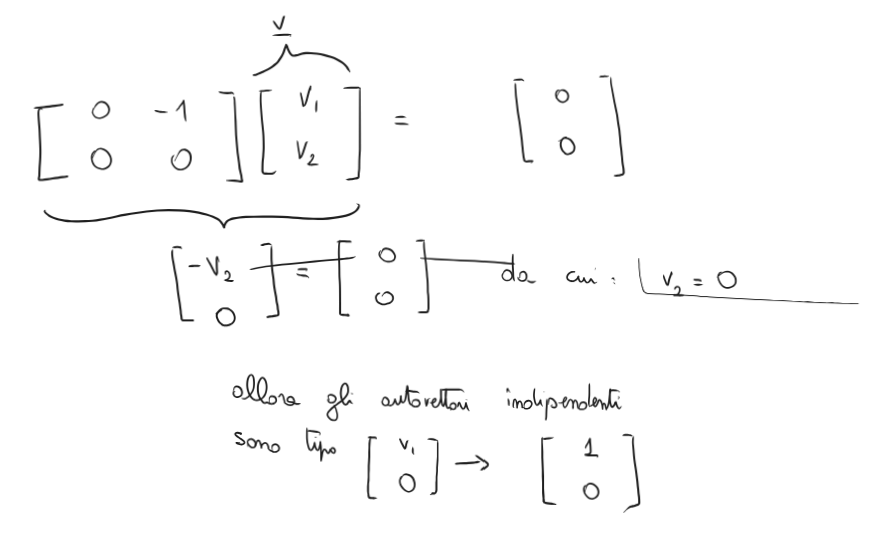 v
[ 0 -1 ] [ v₁ ] = [ 0 ]
[ 0 0 ] [ v₂ ] [ 0 ]
[ -v₂ ] = [ 0 ] da cui : v₂ = 0
[ 0 ] [ 0 ]
allora gli autovettori indipendenti
sono tipo [ v₁ ] → [ 1 ]
[ 0 ] [ 0 ]